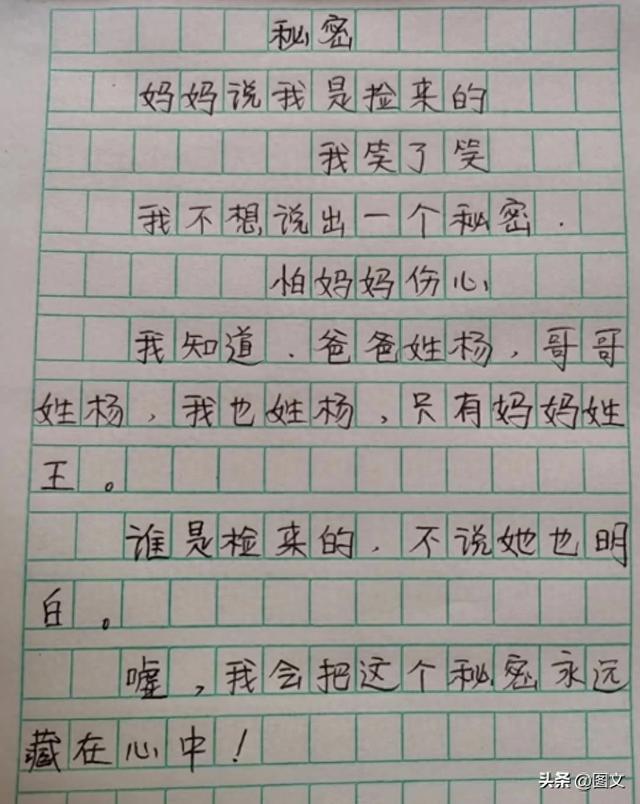 秘密
妈妈说我是捡来的
我笑了笑
我不想说出一个秘密.
怕妈妈伤心
我知道.爸爸姓杨,哥哥
姓杨,我也姓杨,只有妈妈姓
王。
谁是捡来的,不说她也明
白。
嘘,我会把这个秘密永远
藏在心中!
头条 @图文